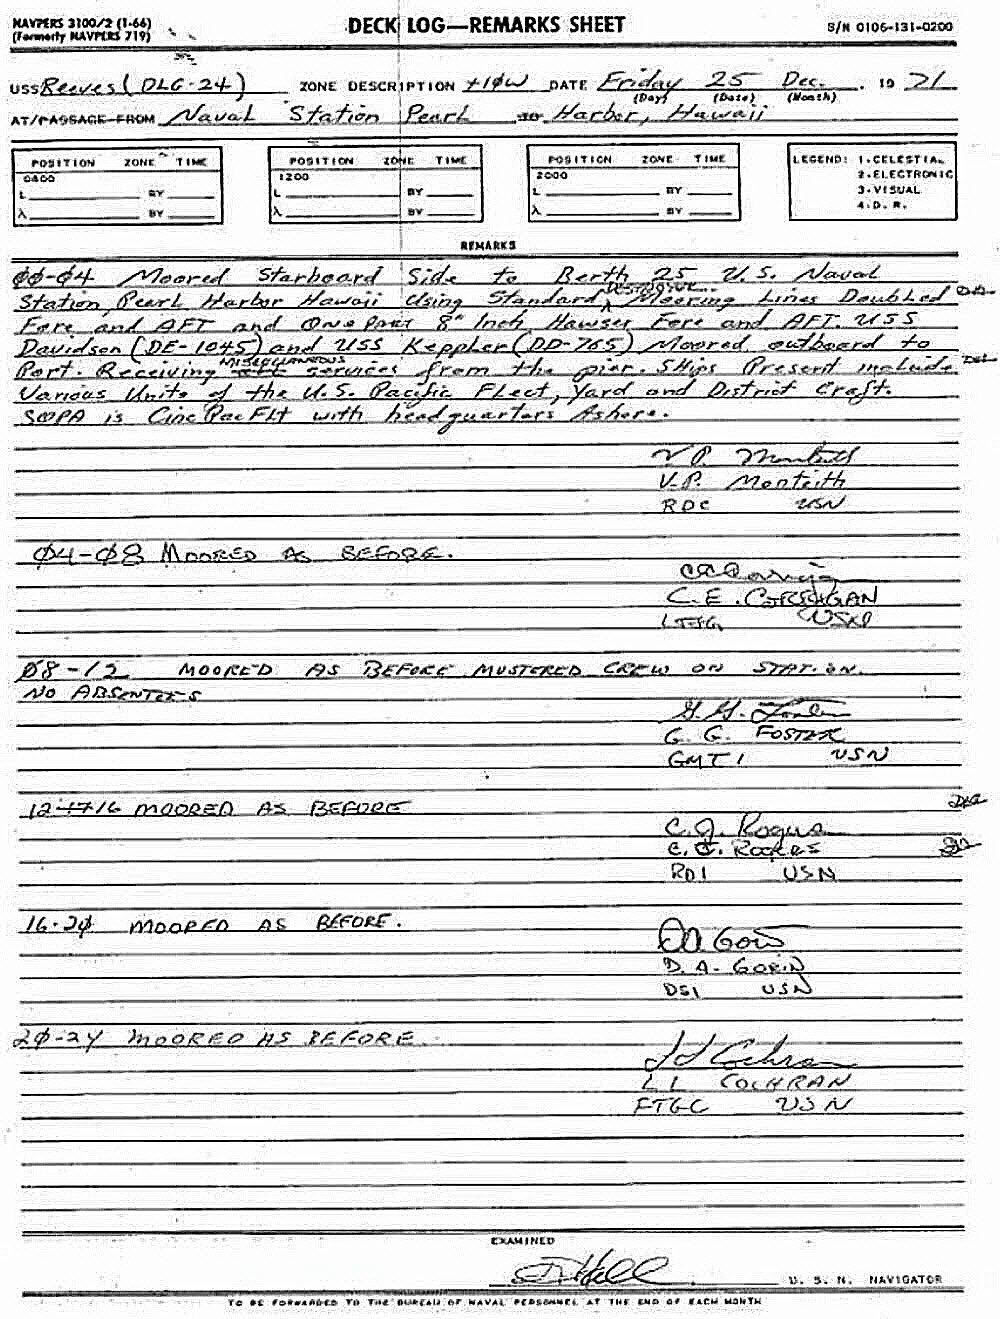 NAVPERS 3100/2 (1-66)
(Formerly NAVPERS 719)
DECK LOG—REMARKS SHEET
S/N 0106-131-0200
USS Reeves (DLG-24) ZONE DESCRIPTION +10W DATE Friday 25 Dec. 19 71
(Day) (Date) (Month)
AT/PASSAGE FROM Naval Station Pearl TO Harbor, Hawaii
POSITION ZONE TIME
0400
L BY
λ BY
POSITION ZONE TIME
1200
L BY
λ BY
POSITION ZONE TIME
2000
L BY
λ BY
LEGEND: 1-CELESTIAL
2-ELECTRONIC
3-VISUAL
4-D. R.
REMARKS
00-04 Moored Starboard Side to Berth 25 U.S. Naval
Station, Pearl Harbor Hawaii Using Standard Destroyer Mooring Lines Doubled
Fore and AFT and One Part 8" Inch Hawser Fore and AFT. USS
Davidson (DE-1045) and USS Keppler (DD-765) Moored outboard to
Port. Receiving miscellaneous services from the pier. Ships Present include
Various Units of the U.S. Pacific Fleet, Yard and District Craft.
SOPA is CincPacFlt with headquarters Ashore.
V.P. Monteith
V.P. Monteith
RDC USN
04-08 MOORED AS BEFORE.
C.E. 
LTJG USN
08-12 MOORED AS BEFORE MUSTERED CREW ON STATION.
NO ABSENTEES
G. G. Foster
G. G. FOSTER
GMT1 USN
12-16 MOORED AS BEFORE
C. J. Rogers
C. J. ROGERS
RD1 USN
16-20 MOORED AS BEFORE.
D A Gorin
D. A. GORIN
DS1 USN
20-24 MOORED AS BEFORE.
Cochran
L I COCHRAN
FTGC USN
EXAMINED
Hall
U. S. N. NAVIGATOR
TO BE FORWARDED TO THE BUREAU OF NAVAL PERSONNEL AT THE END OF EACH MONTH